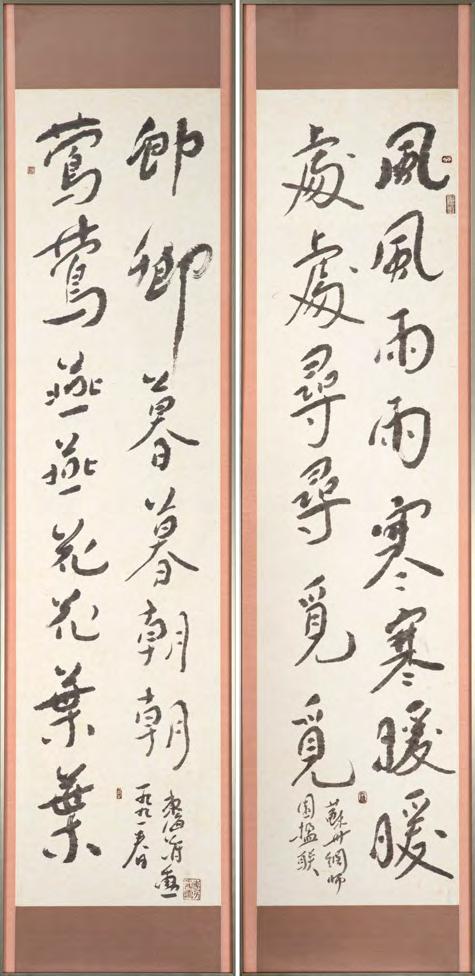 風風雨雨寒寒暖暖
處處尋尋覓覓
蘇州網師
園楹联
鶯鶯燕燕花花葉葉
卿卿暮暮朝朝
一九九一春日